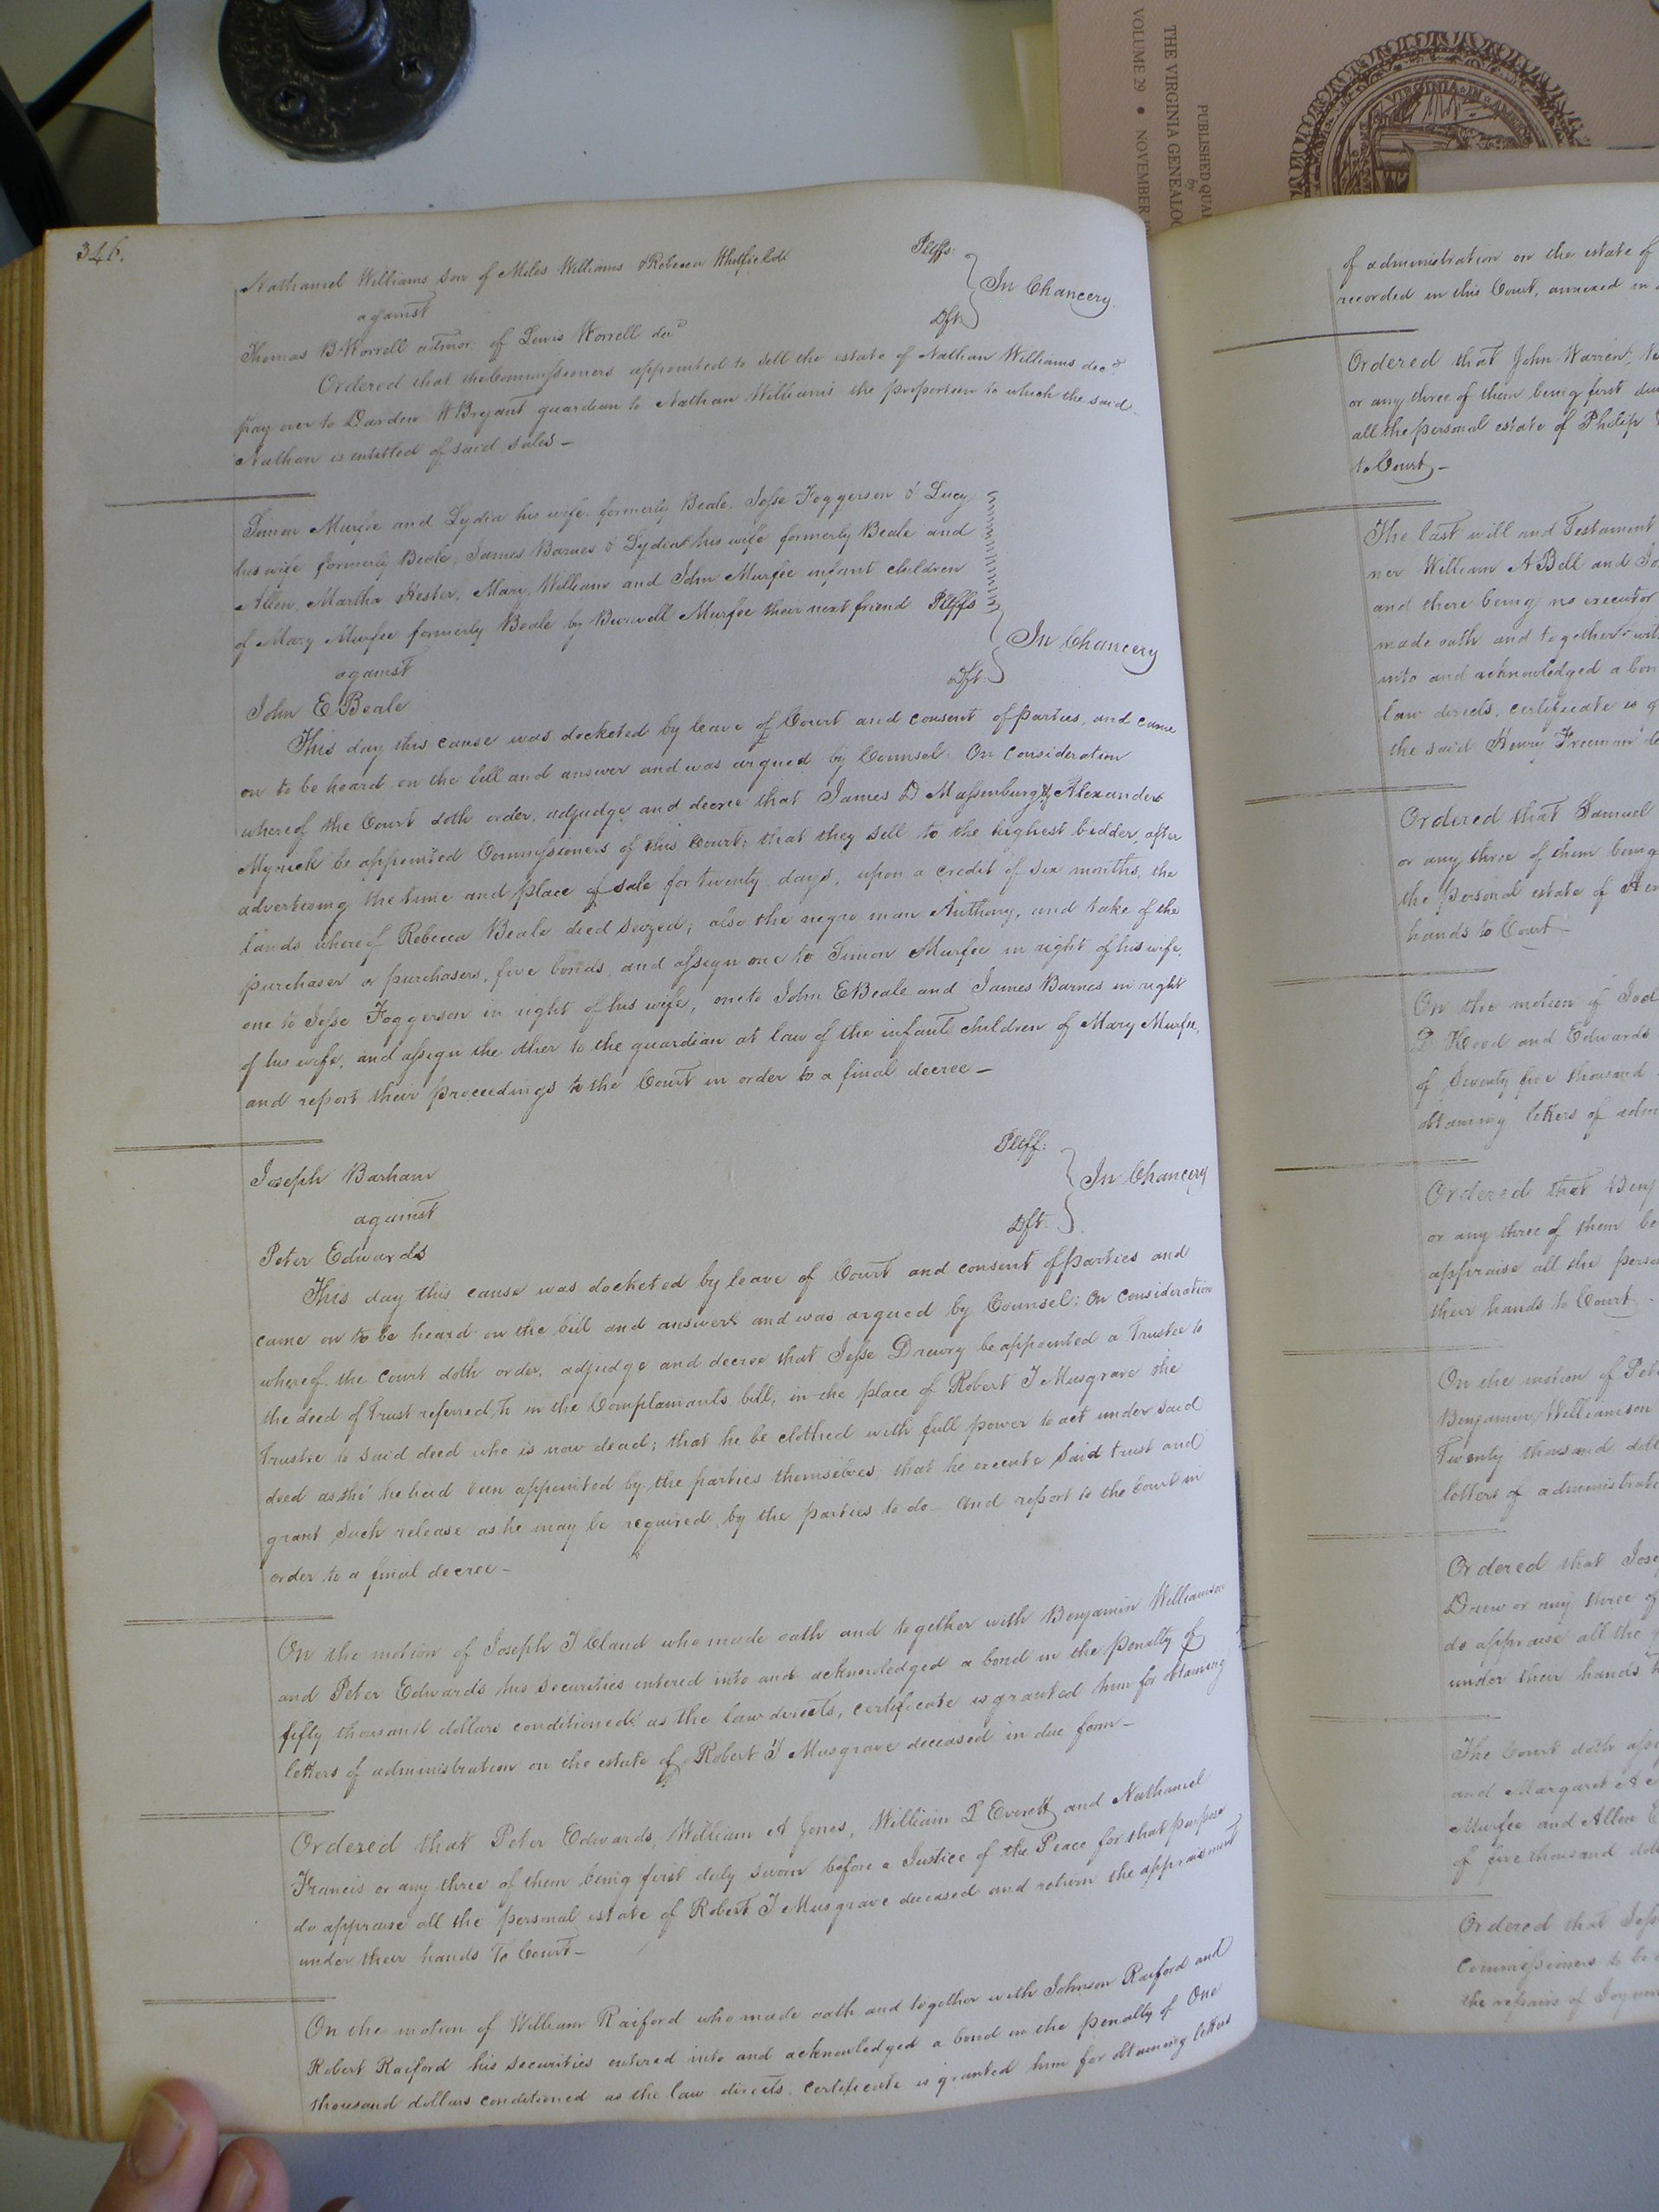 THE VIRGINIA GENEALOG
VOLUME 29 • NOVEMBER
PUBLISHED QUA
by
VIRGINIA IN A
346.
Nathaniel Williams son of Miles Williams & Rebecca Whitfield Pltffs:
against
In Chancery
Thomas B Worrell admor. of Lewis Worrell decd Dft.
Ordered that the Commissioners appointed to sell the estate of Nathan Williams decd
pay over to Darden W Bryant guardian to Nathan Williams the proportion to which the said
Nathan is entitled of said sales —
Simon Murfee and Lydia his wife formerly Beale, Jesse Foggerson & Lucy
his wife formerly Beale, James Barnes & Lydia his wife formerly Beale and
Allen, Martha Hester, Mary, William and John Murfee infant children
of Mary Murfee formerly Beale by Burwell Murfee their next friend Pltffs
against
In Chancery
John E Beale Dft.
This day this cause was docketed by leave of Court and consent of parties, and came
on to be heard on the bill and answer and was argued by Counsel. On consideration
whereof the Court doth order, adjudge and decree that James D Massenburg & Alexander
Myrick be appointed Commissioners of this Court; that they sell to the highest bidder, after
advertising the time and place of sale for twenty days, upon a credit of six months, the
lands whereof Rebecca Beale died seized; also the negro man Anthony, and take of the
purchaser or purchasers, five bonds, and assign one to Simon Murfee in right of his wife,
one to Jesse Foggerson in right of his wife, one to John E Beale and James Barnes in right
of his wife, and assign the other to the guardian at law of the infants children of Mary Murfee,
and report their proceedings to the Court in order to a final decree —
Joseph Barham Pltff:
against
In Chancery
Peter Edwards Dft.
This day this cause was docketed by leave of Court and consent of parties and
came on to be heard on the bill and answer and was argued by Counsel; On consideration
whereof the court doth order, adjudge and decree that Jesse Drewry be appointed a Trustee to
the deed of Trust referred to in the Complainants bill, in the place of Robert J Musgrave the
Trustee to said deed who is now dead; that he be clothed with full power to act under said
deed as tho' he had been appointed by the parties themselves, that he execute said trust and
grant such release as he may be required by the parties to do — And report to the Court in
order to a final decree —
On the motion of Joseph J Claud who made oath and together with Benjamin Williamson
and Peter Edwards his securities entered into and acknowledged a bond in the penalty of
fifty thousand dollars conditioned as the law directs, certificate is granted him for obtaining
letters of administration on the estate of Robert J Musgrave deceased in due form —
Ordered that Peter Edwards, William A Jones, William L Everett and Nathaniel
Francis or any three of them being first duly sworn before a Justice of the Peace for that purpose
do appraise all the personal estate of Robert J Musgrave deceased and return the appraisement
under their hands To Court —
On the motion of William Raiford who made oath and together with Johnson Raiford and
Robert Raiford his securities entered into and acknowledged a bond in the penalty of One
thousand dollars conditioned as the law directs, certificate is granted him for obtaining letters
of administration on the estate of
recorded in this Court, annexed in
Ordered that John Warren,
or any three of them being first du
all the personal estate of Philip
to Court —
The last will and Testament
ner William A Bell and Jo
and there being no executor
made oath and together with
into and acknowledged a bon
law directs, certificate is g
the said Henry Freeman de
Ordered that Samuel
or any three of them being
the personal estate of
hands to Court —
On the motion of
D Hood and Edwards
of Seventy five thousand
obtaining letters of adm
Ordered that Benj
or any three of them be
appraise all the perso
their hands to Court —
On the motion of Pet
Benjamin Williamson
Twenty thousand doll
letters of administrati
Ordered that Jos
Drew or any three of
do appraise all the
under their hands
The Court doth
and Margaret A
Murfee and Allen E
of five thousand doll
Ordered that Jess
Commissioners to be
the repairs of